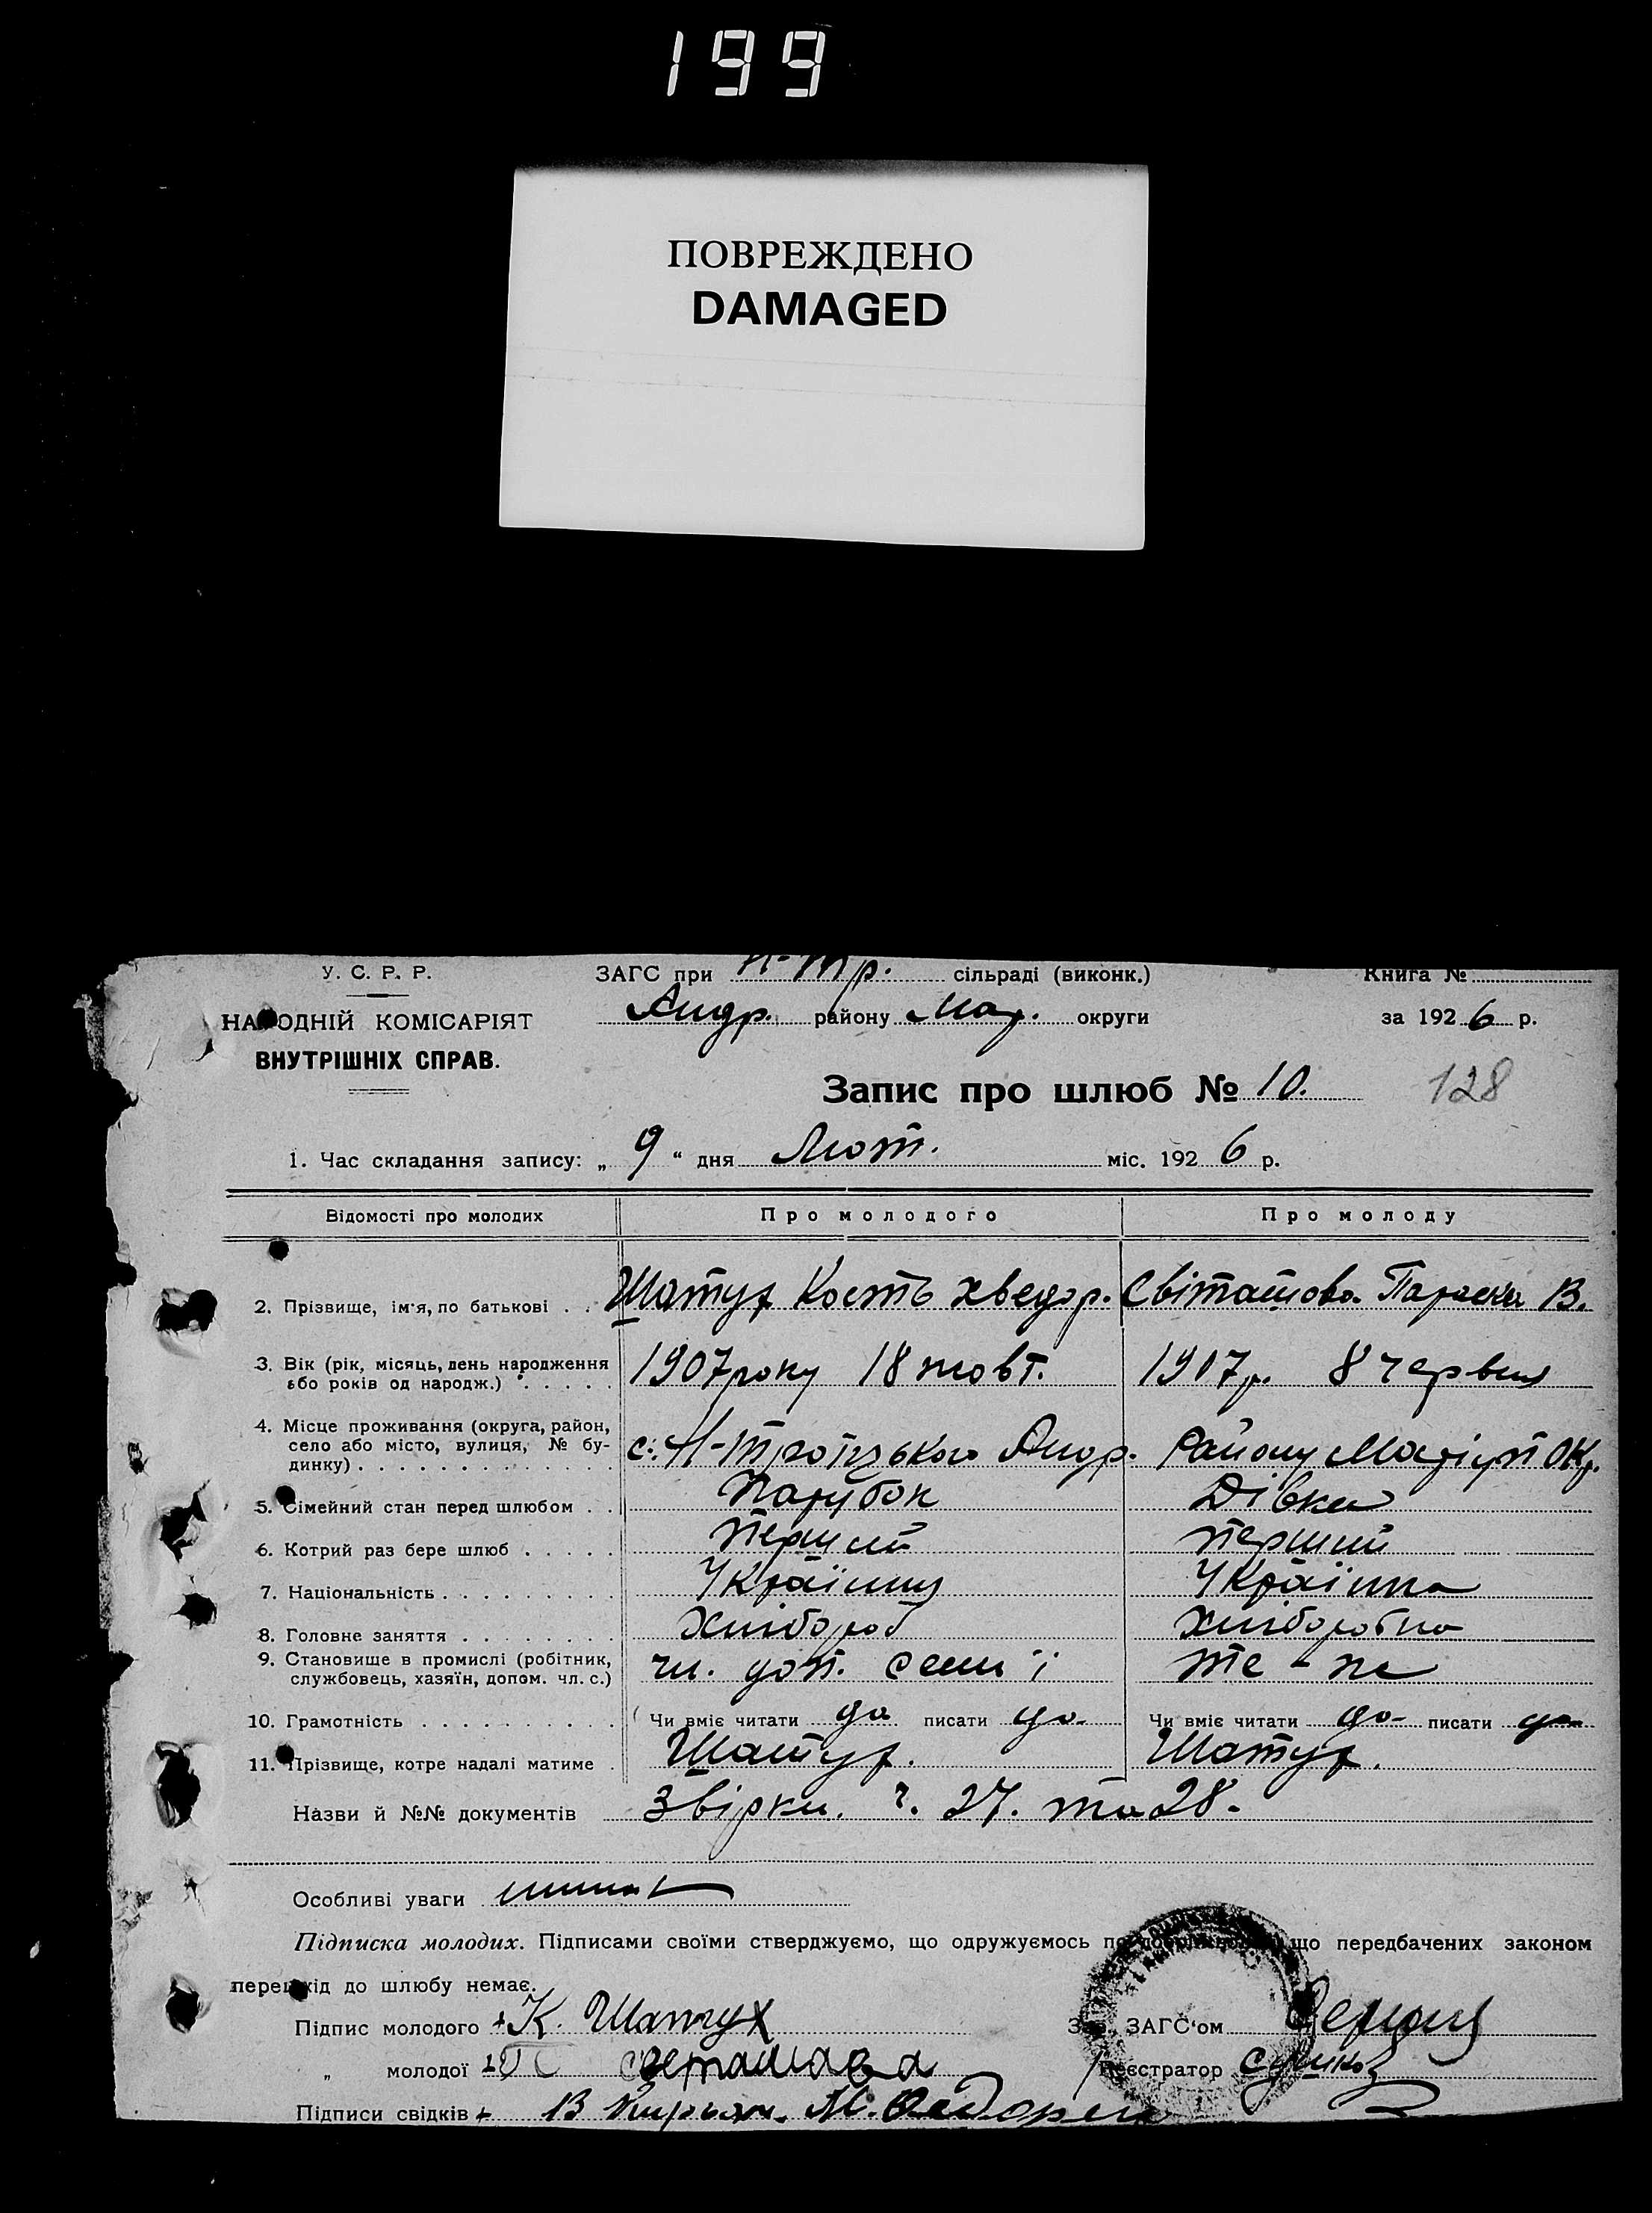 199
ПОВРЕЖДЕНО
DAMAGED
У. С. Р. Р.
НАРОДНІЙ КОМІСАРІЯТ
ВНУТРІШНІХ СПРАВ.
ЗАГС при Н-Тр. сільраді (виконк.)
Андр. району Мар. округи
Книга №
за 1926 р.
Запис про шлюб № 10.
128
1. Час складання запису: „ 9 “ дня Лют. міс. 1926 р.
Відомості про молодих Про молодого Про молоду
2. Прізвище, ім'я, по батькові . . Шатух Кость Хведор. Світашова Параска В.
3. Вік (рік, місяць, день народження
або років од народж.) . . . . . 1907 року 18 жовт. 1907 р. 8 червня
4. Місце проживання (округа, район,
село або місто, вулиця, № бу-
динку) . . . . . . . . . . . . . с. Н-Троїцького Андр. Району Маріуп Окр.
5. Сімейний стан перед шлюбом . . Парубок Дівка
6. Котрий раз бере шлюб . . . . . Перший Перший
7. Національність . . . . . . . . . Українец Українка
8. Головне заняття . . . . . . . . Хлібороб Хліборобка
9. Становище в промислі (робітник,
службовець, хазяїн, допом. чл. с.) чл. доп. семи'ї те-же
10. Грамотність . . . . . . . . . . Чи вміє читати да писати да Чи вміє читати да писати да
11. Прізвище, котре надалі матиме . Шатух. Шатух.
Назви й №№ документів Звірки. ч. 27. та 28.
Особливі уваги
Підписка молодих. Підписами своїми стверджуємо, що одружуємось по що передбачених законом
перешкід до шлюбу немає.
Підпис молодого + К. Шатух Зав. ЗАГС'ом
„ молодої + П Світашова Реєстратор
Підписи свідків + В М.